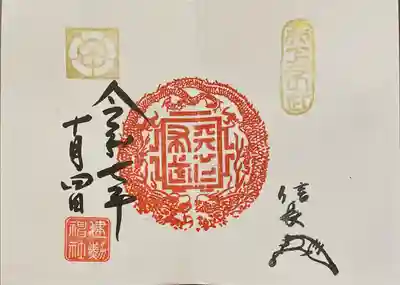 天下布武
信長
天下布武
令和七年
十月四日
建勲神社